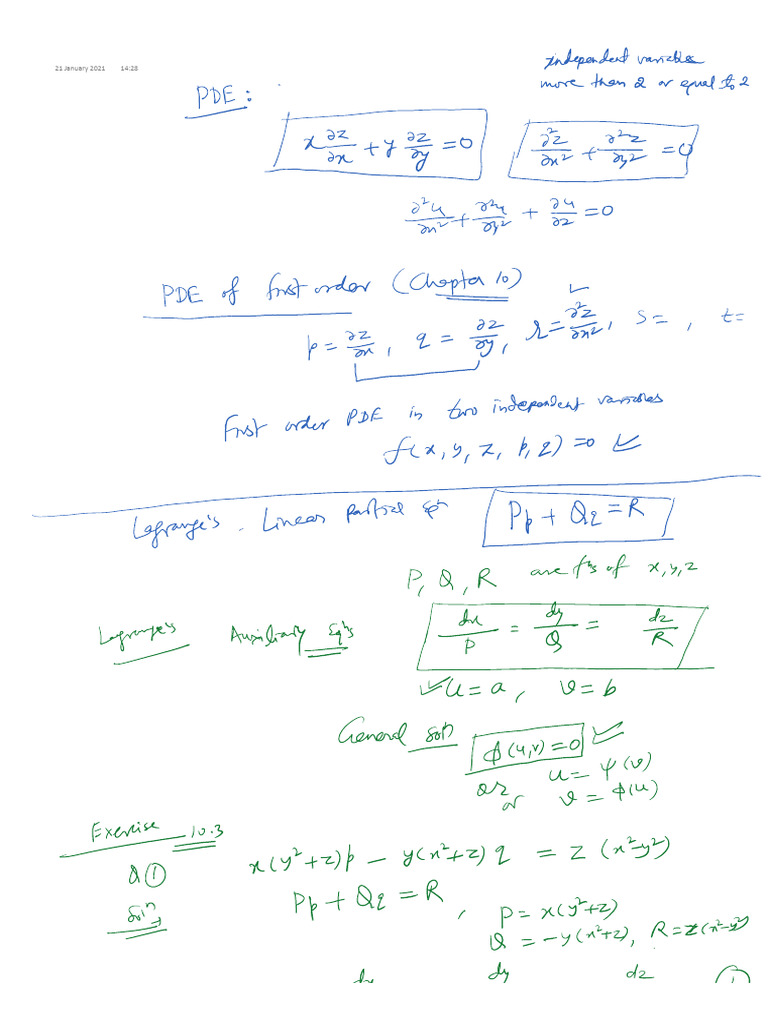 21 January 2021 14:28
independent variables
more than 2 or equal to 2
PDE :
x ∂z/∂x + y ∂z/∂y = 0
∂²z/∂x² + ∂²z/∂y² = 0
∂²u/∂x² + ∂²u/∂y² + ∂u/∂z = 0
PDE of first order (Chapter 10)
p = ∂z/∂x, q = ∂z/∂y, r = ∂²z/∂x², s = , t =
First order PDE in two independent variables
f(x, y, z, p, q) = 0 ✓
Lagrange's Linear Partial Eqⁿ Pp + Qq = R
P, Q, R are fⁿs of x, y, z
Lagrange's Auxiliary Eqⁿs dx/P = dy/Q = dz/R
✓ u = a, v = b
General Solⁿ φ(u, v) = 0 ✓
or u = ψ(v)
or v = φ(u)
Exercise 10.3
Q ① x(y² + z)p − y(x² + z)q = z(x² − y²)
Solⁿ → Pp + Qq = R, P = x(y² + z)
Q = −y(x² + z), R = z(x² − y²)
dx dy dz ①